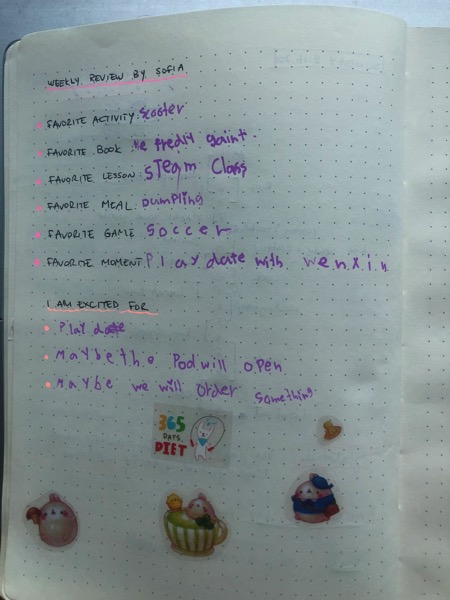 WEEKLY REVIEW BY SOFIA
FAVORITE ACTIVITY: Scooter
FAVORITE BOOK: The fredly gaint.
FAVORITE LESSON: STeam Class
FAVORITE MEAL: Dumpling
FAVORITE GAME: Soccer
FAVORITE MOMENT: Play date with wenxin
I AM EXCITED FOR
Play date
Maybe the Pod will open
Maybe we will order something
365
DAYS
DIET